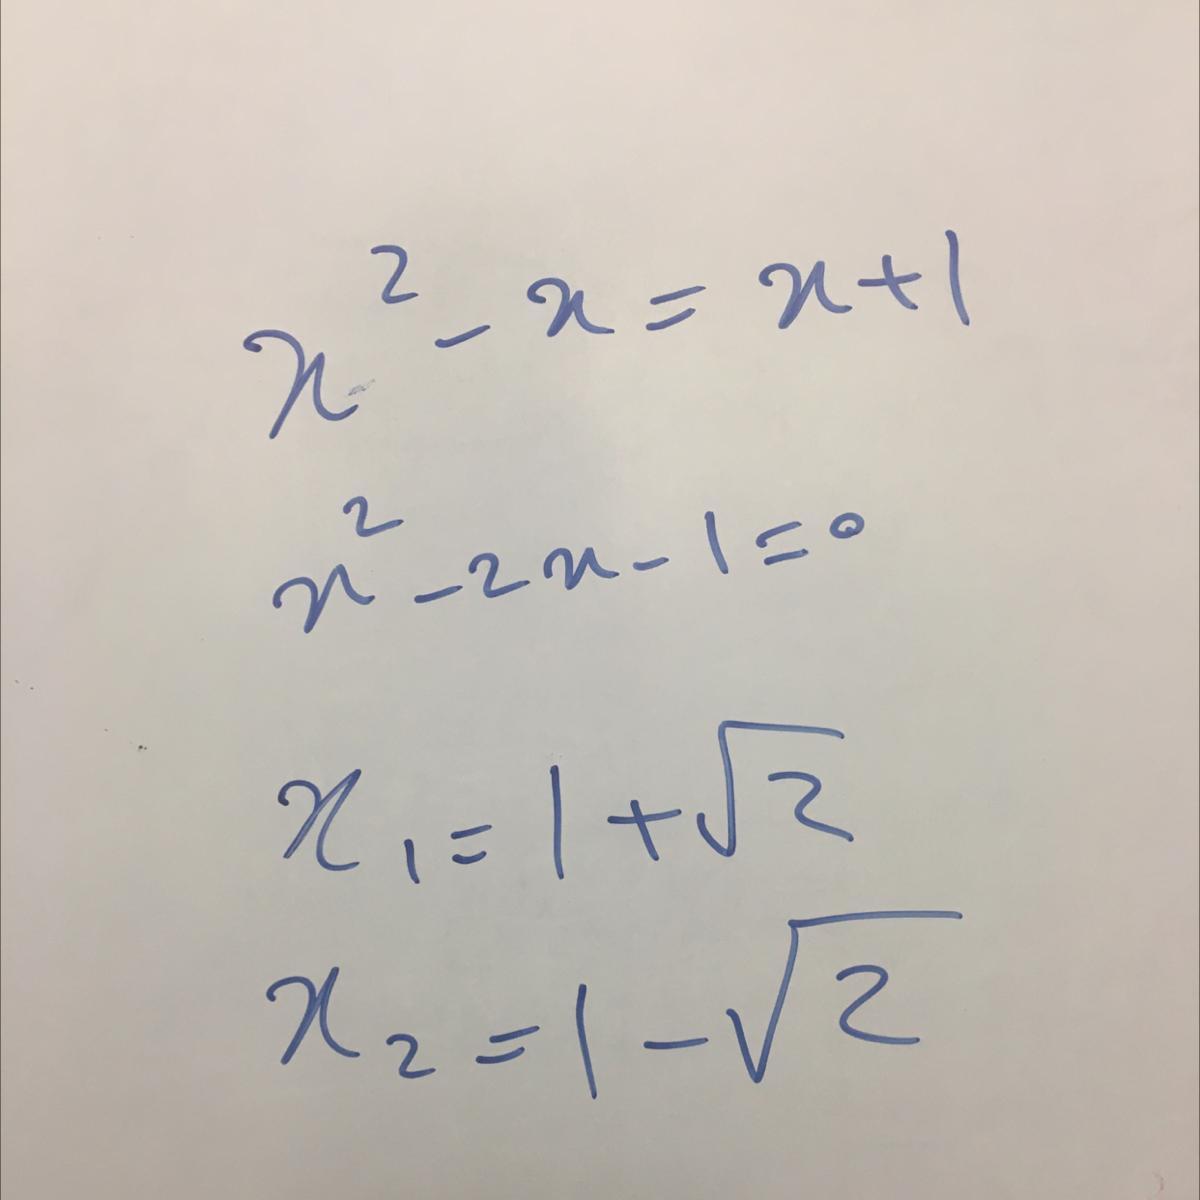 x² - x = x + 1
x² - 2x - 1 = 0
x₁ = 1 + √2
x₂ = 1 - √2